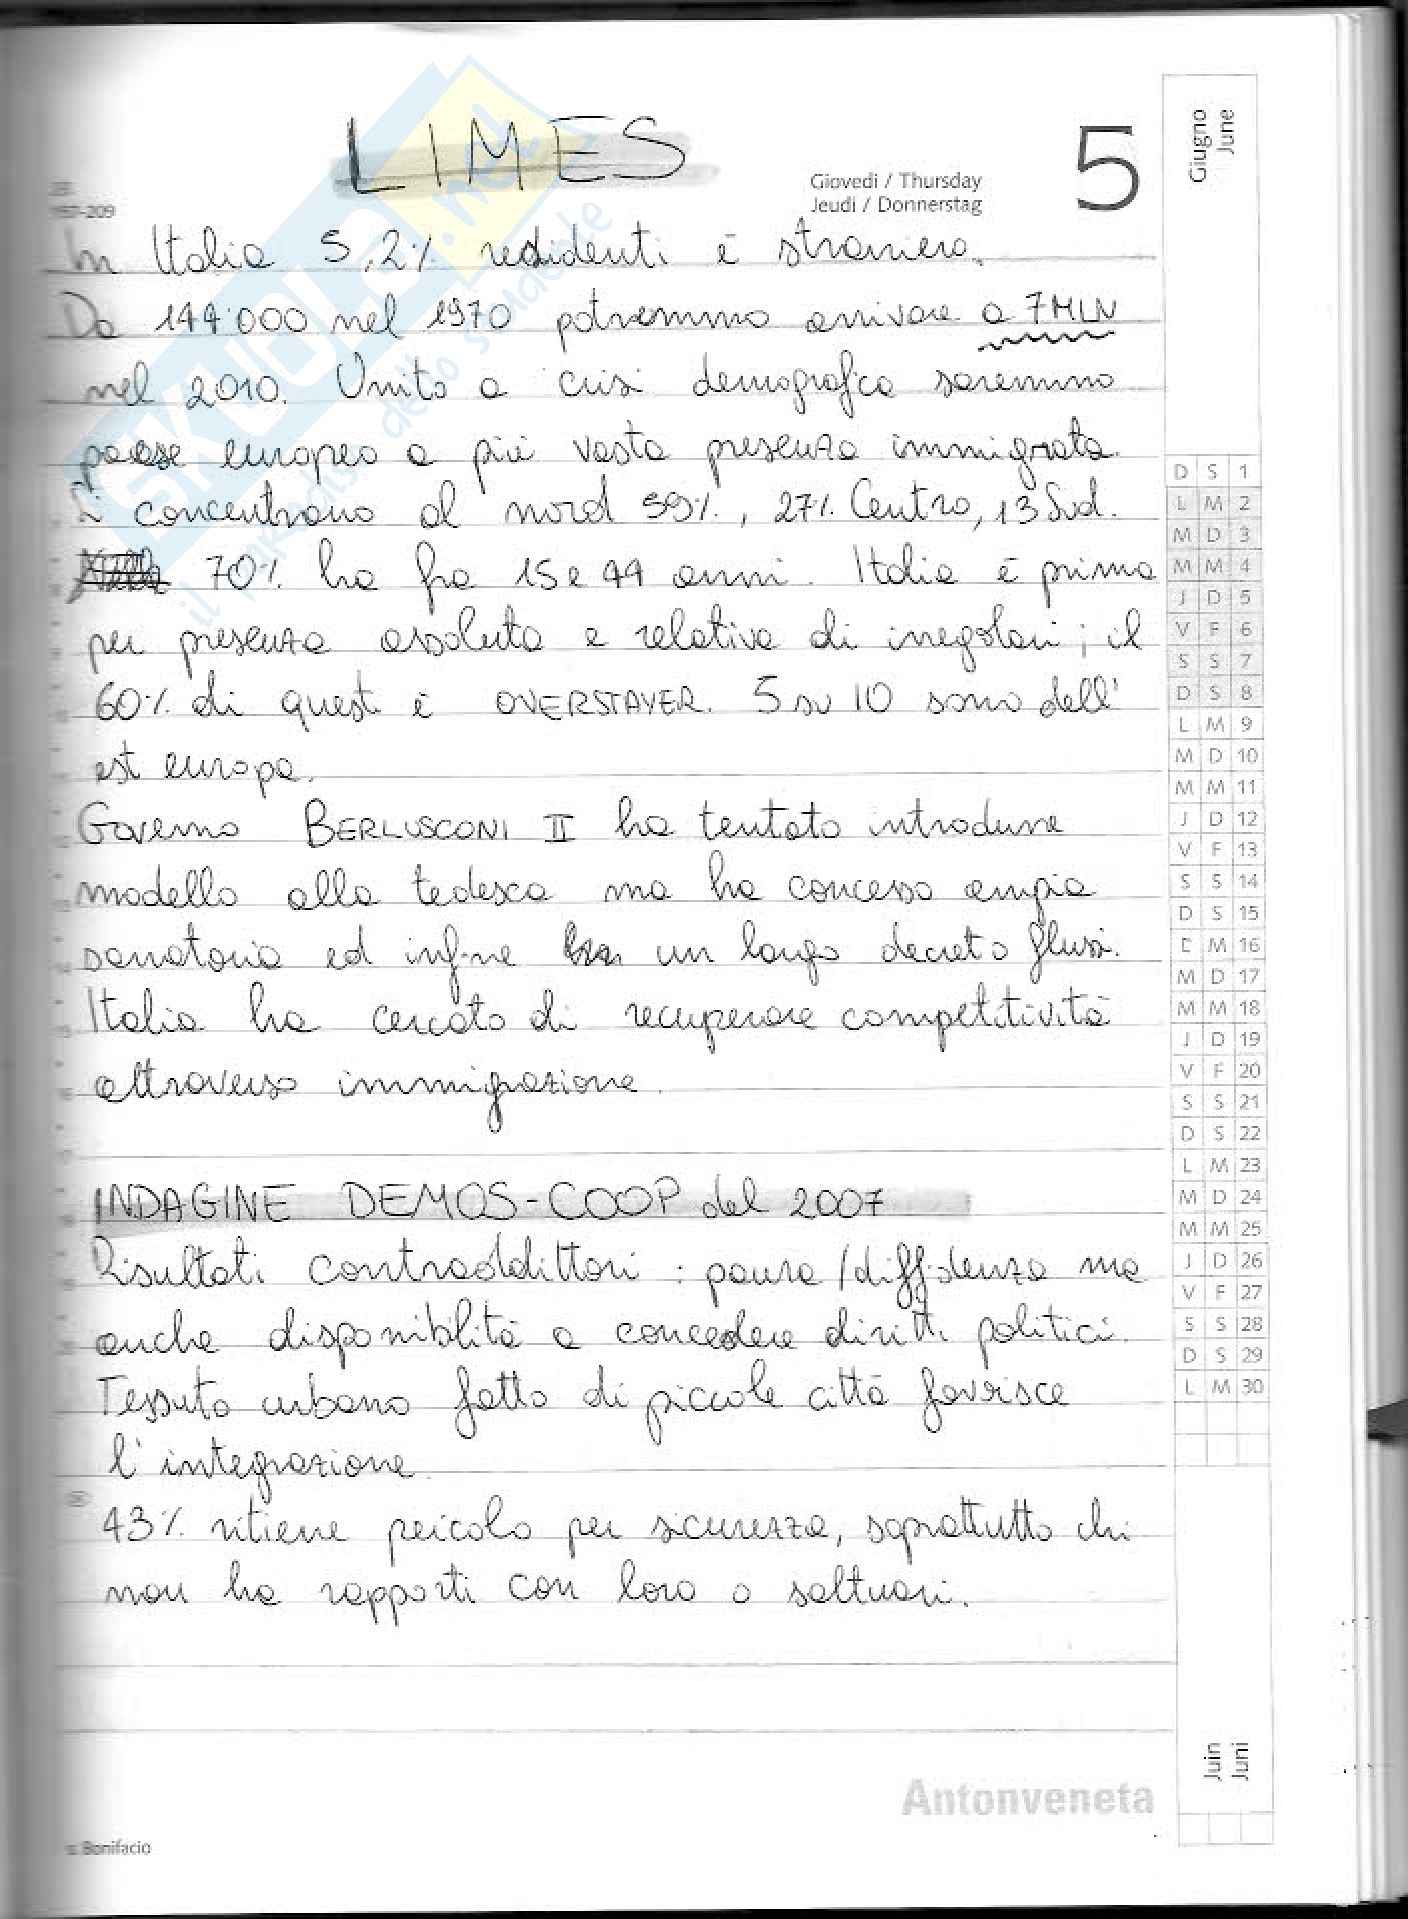 LIMES
Giovedi / Thursday
Jeudi / Donnerstag
5
Giugno
June
157-209
In Italia 5,2% residenti è straniero.
Da 144'000 nel 1970 potremmo arrivare a 7MLN
nel 2010. Unito a crisi demografica saremmo
paese europeo a più vasta presenza immigrata.
Si concentrano al nord 59%, 27% Centro, 13 Sud.
70% ha fra 15 e 44 anni. Italia è prima
per presenza assoluta e relativa di irregolari; il
60% di questi è OVERSTAYER. 5 su 10 sono dell'
est europa.
Governo BERLUSCONI II ha tentato introdurre
modello alla tedesca ma ha concesso ampia
sanatoria ed infine un largo decreto flussi.
Italia ha cercato di recuperare competitività
attraverso immigrazione.
INDAGINE DEMOS-COOP del 2007
Risultati contraddittori: paura/diffidenza ma
anche disponibilità a concedere diritti politici.
Tessuto urbano fatto di piccole città favorisce
l'integrazione
43% ritiene pericolo per sicurezza, soprattutto chi
non ha rapporti con loro o saltuari.
D S 1
L M 2
M D 3
M M 4
J D 5
V F 6
S S 7
D S 8
L M 9
M D 10
M M 11
J D 12
V F 13
S S 14
D S 15
L M 16
M D 17
M M 18
J D 19
V F 20
S S 21
D S 22
L M 23
M D 24
M M 25
J D 26
V F 27
S S 28
D S 29
L M 30
Juin
Juni
Antonveneta
s. Bonifacio
SKUOLA.net
il paradiso dello studente